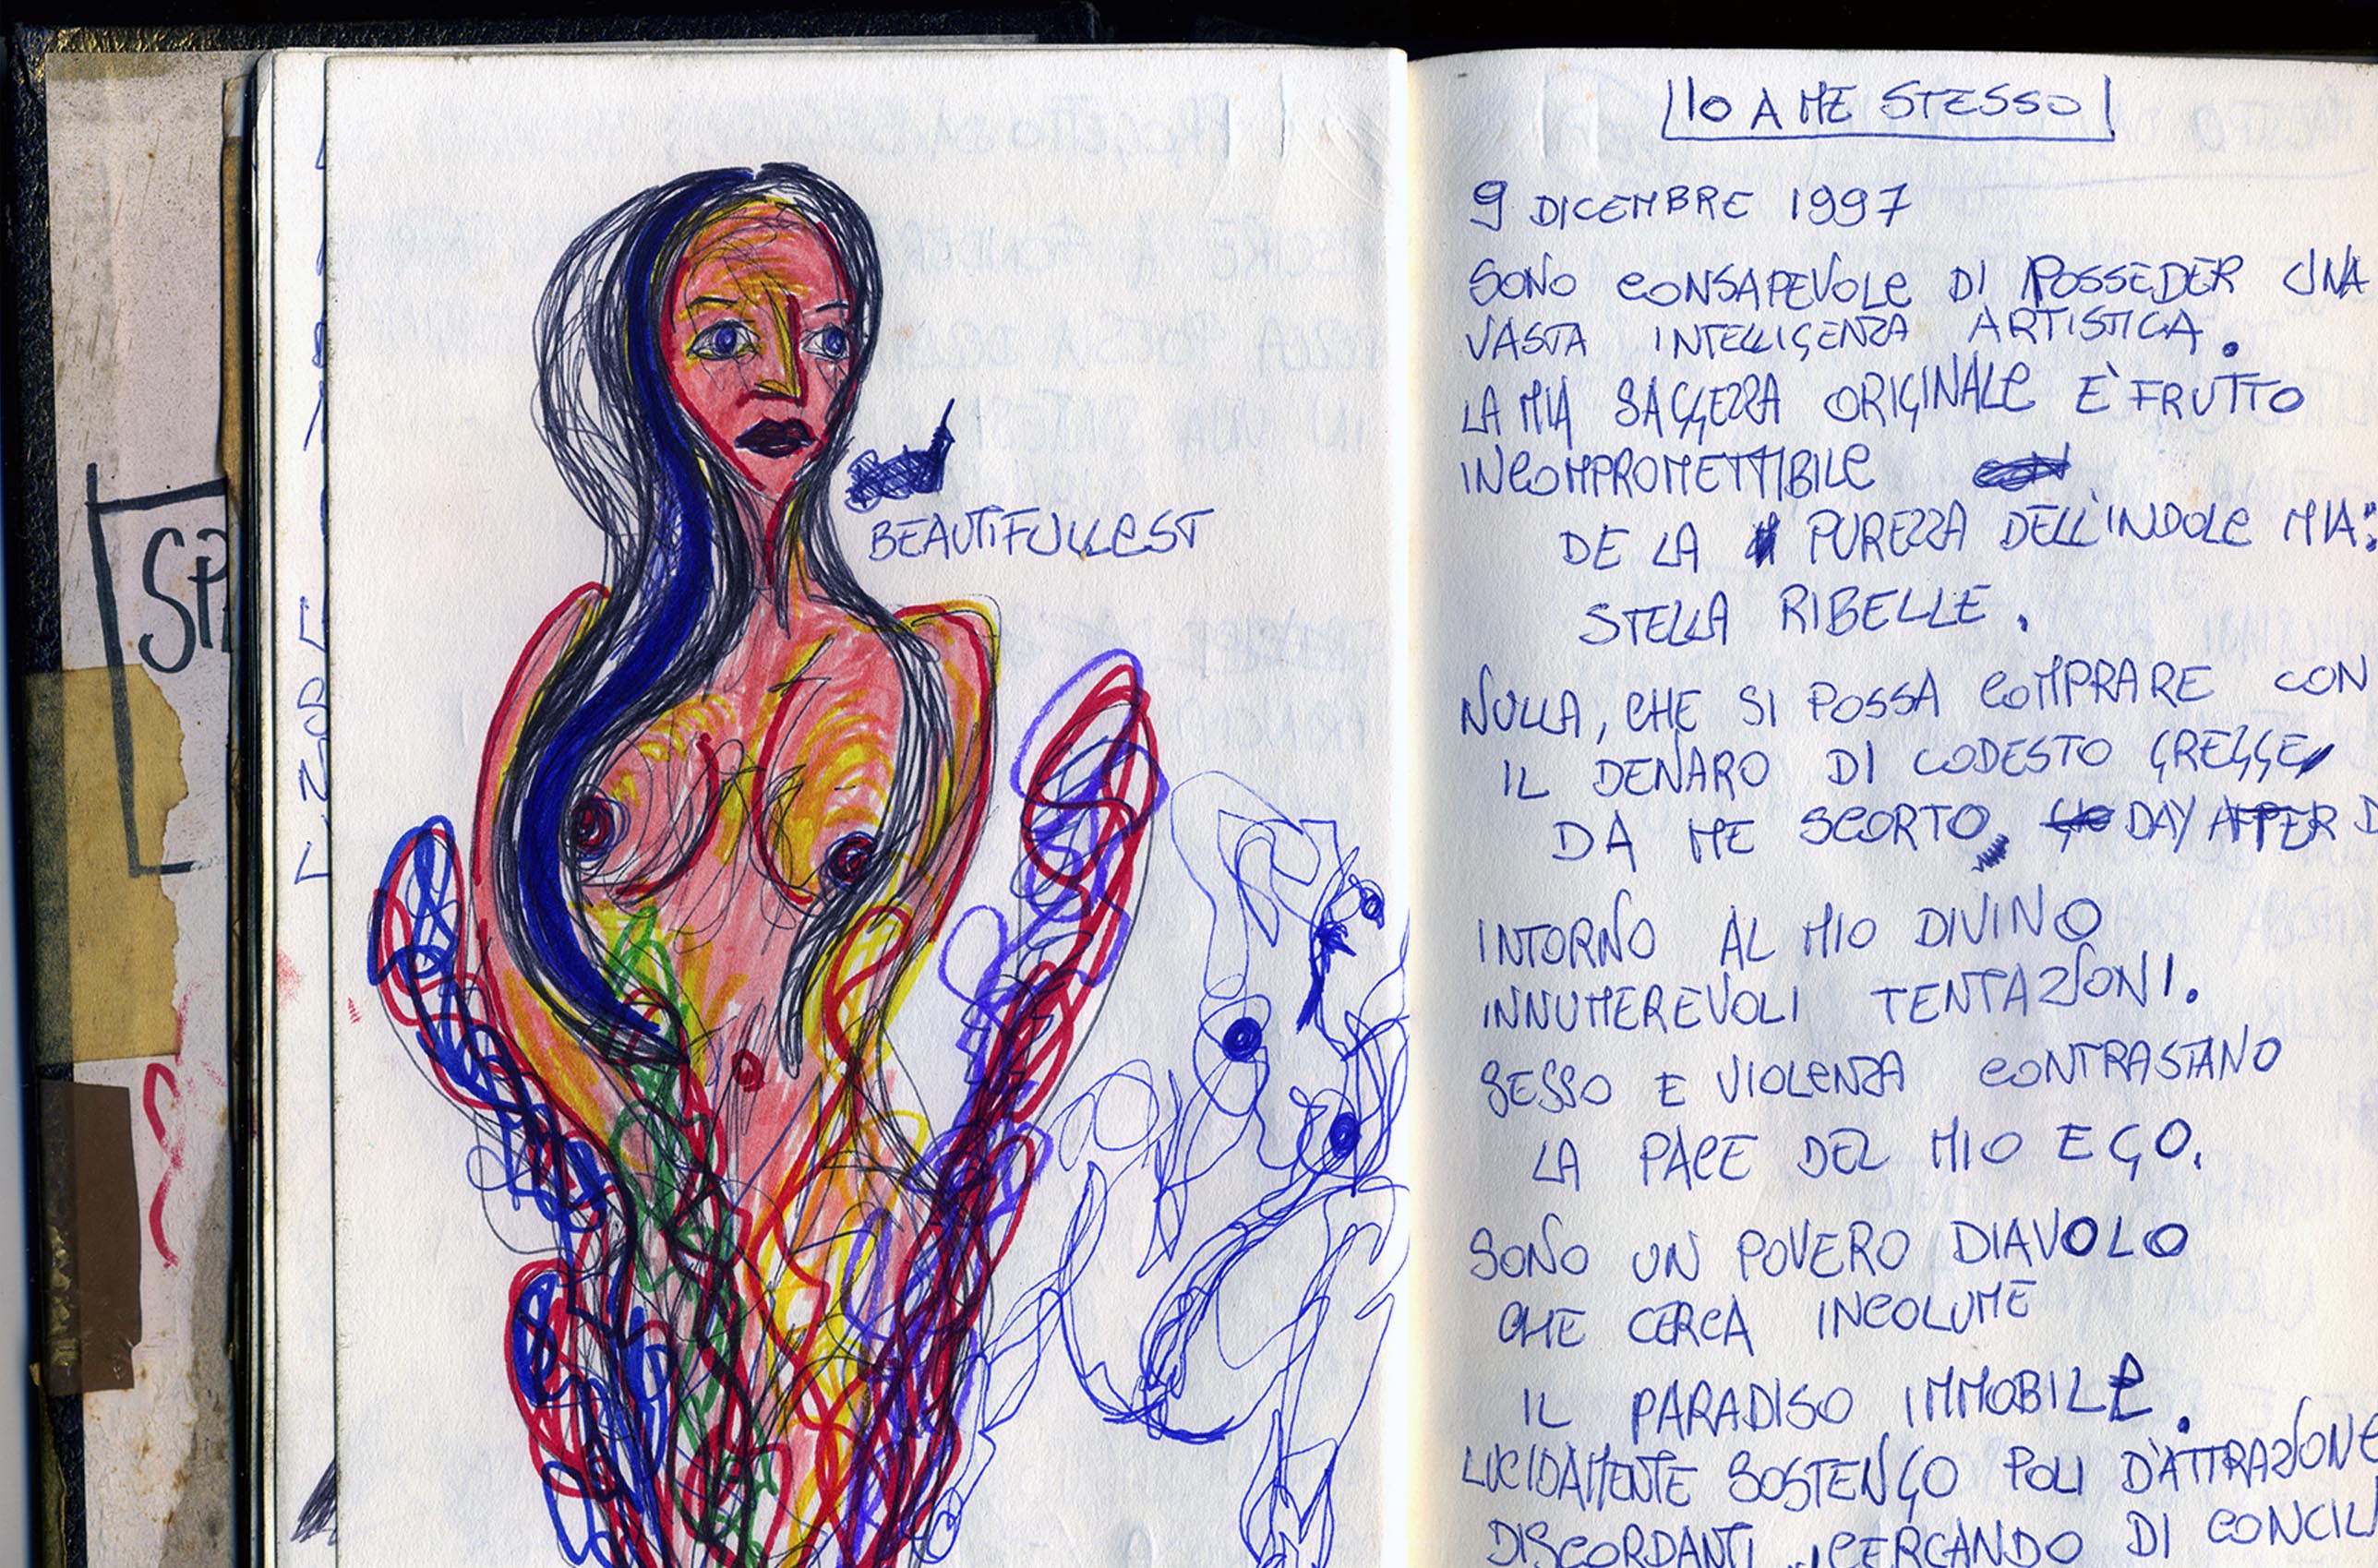 SP
BEAUTIFULLEST
IO A ME STESSO
9 DICEMBRE 1997
SONO CONSAPEVOLE DI POSSEDER UNA
VASTA INTELLIGENZA ARTISTICA.
LA MIA SAGGEZZA ORIGINALE E' FRUTTO
INCOMPROMETTIBILE
DE LA PUREZZA DELL'INDOLE MIA:
STELLA RIBELLE.
NULLA, CHE SI POSSA COMPRARE CON
IL DENARO DI CODESTO GREGGE,
DA ME SCORTO, DAY AFTER D
INTORNO AL MIO DIVINO
INNUMEREVOLI TENTAZIONI.
SESSO E VIOLENZA CONTRASTANO
LA PACE DEL MIO EGO.
SONO UN POVERO DIAVOLO
CHE CERCA INCOLUME
IL PARADISO IMMOBILE.
LUCIDAMENTE SOSTENGO POLI D'ATTRAZIONE
DISCORDANTI, CERCANDO DI CONCIL